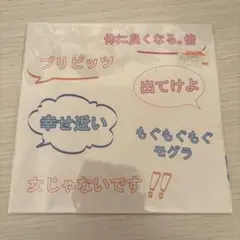 体に良くなる。倍
プリピッツ
出てけよ
幸せ近い
もぐもぐもぐ
モグラ
女じゃないです!!